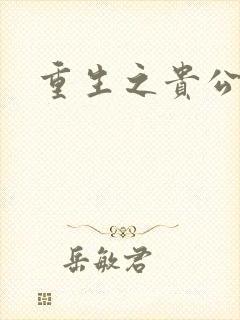 重生之貴公
岳敏君